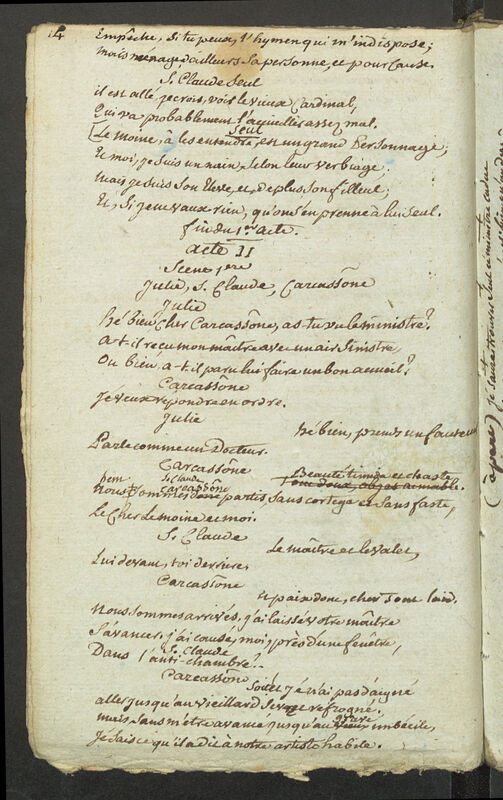 14
Empêche, si tu peux, l'hymen qui m'indispose;
Mais ménage d'ailleurs sa personne, et pour cause.
S. Claude seul
il est allé, je crois, voir le vieux Cardinal,
Qui va probablement l'accueillir assez mal.
Le moine, à les entendre, est un grand Personnage;
Et moi, je suis un nain, selon leur verbiage.
Mais je suis son Eleve, et, de plus, son filleul;
Et, si je ne vaux rien, qu'on s'en prenne à lui seul.
fin du 1er acte.
acte II
Scene 1ere
Julie, S. Claude, Carcassône
Julie
Hé bien, cher Carcassône, as-tu vu le ministre?
A-t-il reçu mon maître avec un air sinistre,
Ou bien, a-t-il paru lui faire un bon accueil?
Carcassône
Je veux répondre en ordre.
Julie
Hé bien, prends un fauteuil
Parle comme un Docteur.
Carcassône
Beauté timide et chaste
S. Claude
hem
Carcassône
Nous sommes donc partis, sans cortege et sans faste,
Le cher Lemoine et moi.
S. Claude
Le maître et le valet,
Lui devant, toi derriere.
Carcassône
et paix donc, cher
Nous sommes arrivés, j'ai laissé votre maître
S'avancer; j'ai causé, moi, près d'une fenêtre,
Dans l'anti-chambre.
S. Claude
Carcassône
je n'ai pas daigné
aller jusqu'au vieillard refrogné.
mais sans m'être avancé jusqu'au grave imbécile,
Je sais ce qu'il a dit à notre artiste habile.